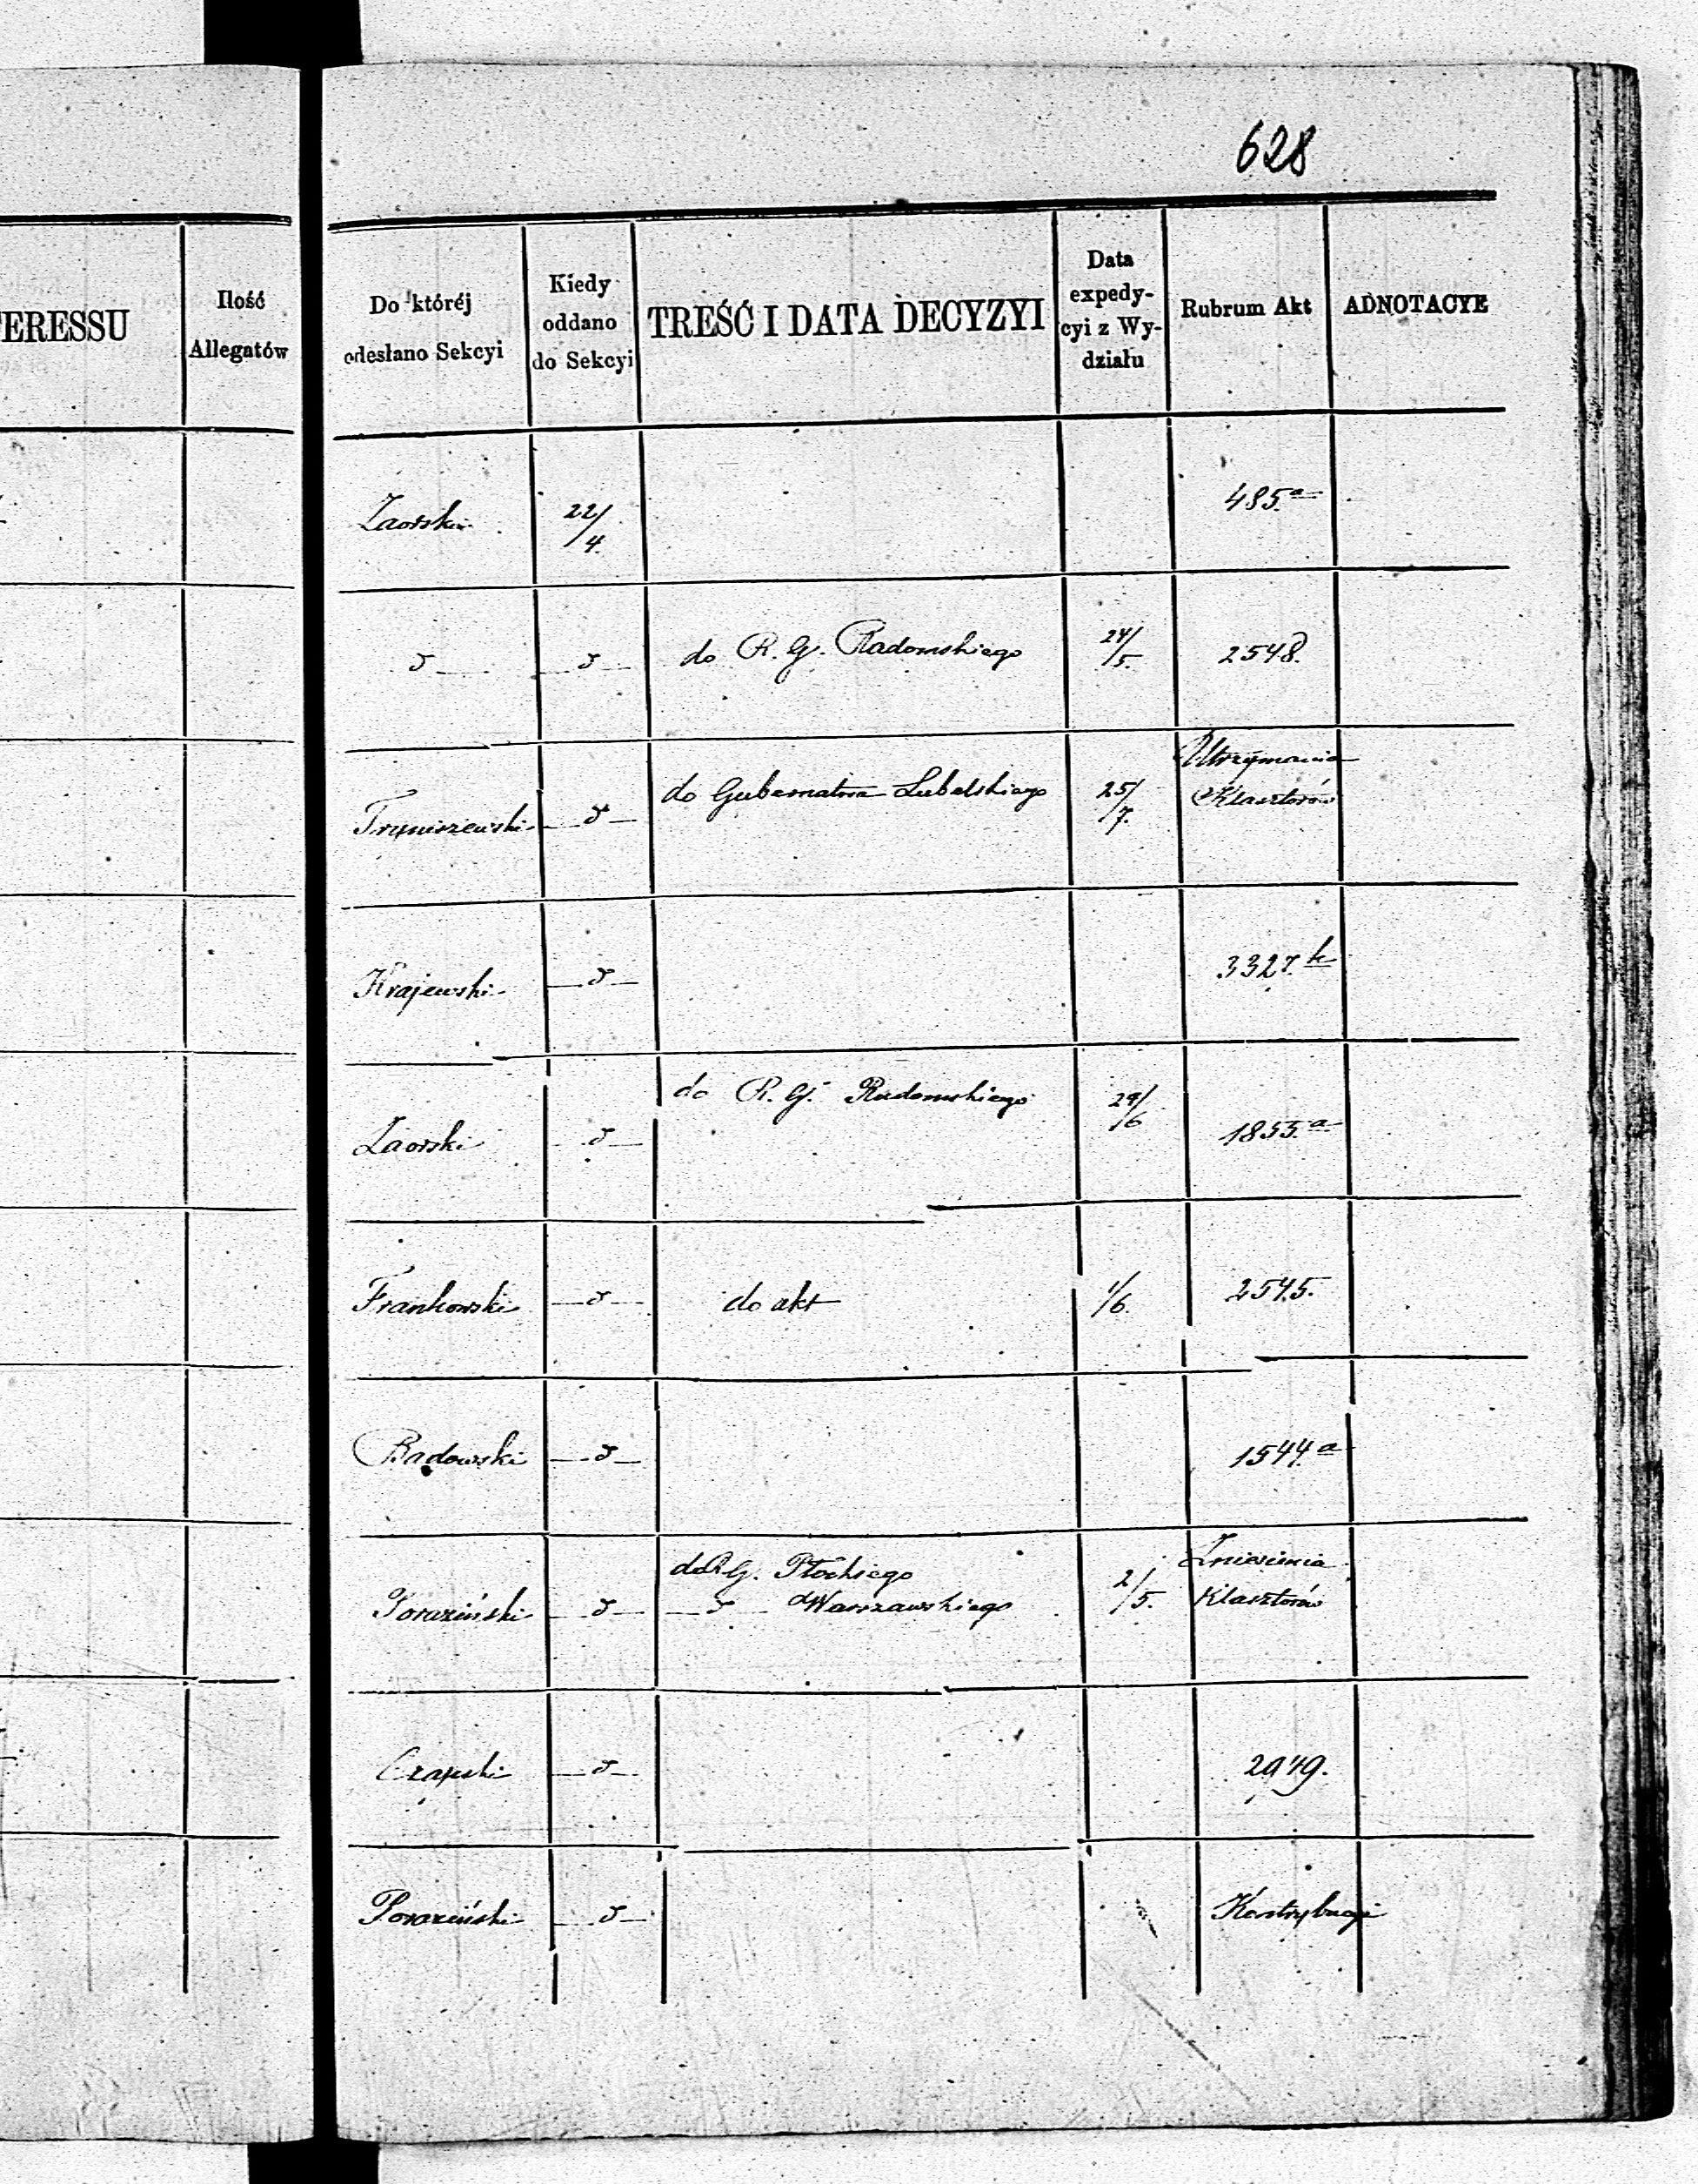 628
TERESSU
Ilość
Allegatów
Do któréj
odesłano Sekcyi
Kiedy
oddano
do Sekcyi
TREŚĆ I DATA DECYZYI
Data
expedy-
cyi z Wy-
działu
Rubrum Akt
ADNOTACYE
Zaorski 22/4. 485.a
d d do R. G. Radomskiego 24/5. 2548.
Utrzymania
do Gubernatora Lubelskiego 25/7. Klasztorów
d
Krajewski d 3327.k
do R. G. Radomskiego 29/6
Zaorski d 1855.a
Frankowski d do akt 1/6. 2545.
Badowski d 1544.a
do R. G. Płockiego Zniesienia
Poraziński d d Warszawskiego 2/5. Klasztorów
Czapski d 2949.
Poraziński d Kontrybucyi